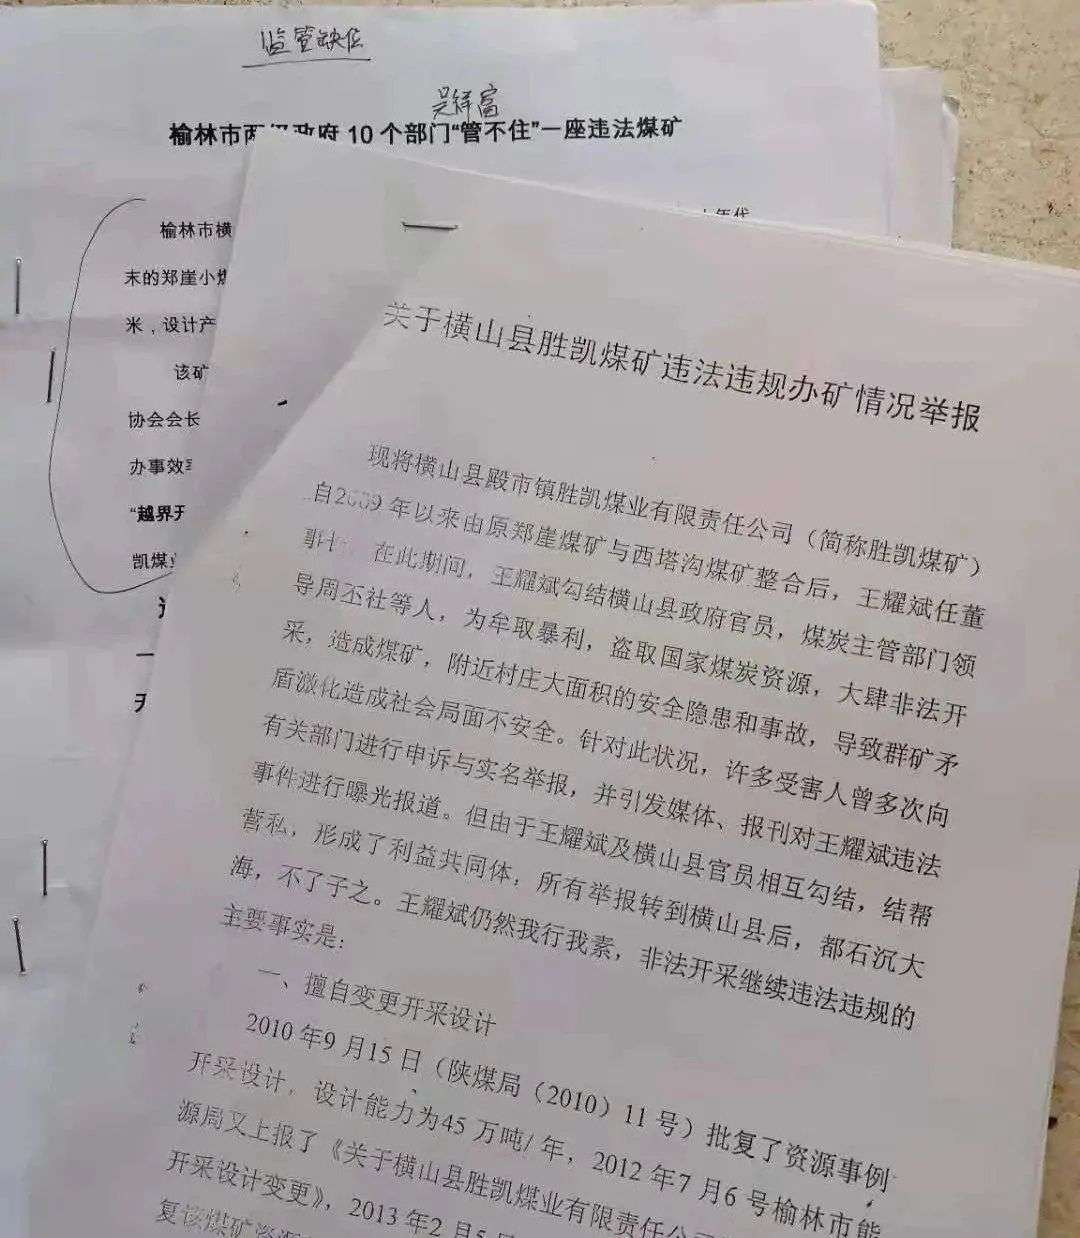 监管缺位
吴祥富
榆林市两级政府 10 个部门“管不住”一座违法煤矿
十年代
榆林市横
末的郑崖小煤
米，设计产
该矿
协会会长
办事效率
“越界开
凯煤业
关于横山县胜凯煤矿违法违规办矿情况举报
现将横山县殿市镇胜凯煤业有限责任公司（简称胜凯煤矿）
自2009 年以来由原郑崖煤矿与西塔沟煤矿整合后，王耀斌任董
事长。在此期间，王耀斌勾结横山县政府官员，煤炭主管部门领
导周丕社等人，为牟取暴利，盗取国家煤炭资源，大肆非法开
采，造成煤矿，附近村庄大面积的安全隐患和事故，导致群矿矛
盾激化造成社会局面不安全。针对此状况，许多受害人曾多次向
有关部门进行申诉与实名举报，并引发媒体、报刊对王耀斌违法
事件进行曝光报道。但由于王耀斌及横山县官员相互勾结，结帮
营私，形成了利益共同体，所有举报转到横山县后，都石沉大
海，不了了之。王耀斌仍然我行我素，非法开采继续违法违规的
主要事实是：
一、擅自变更开采设计
2010 年9 月15 日（陕煤局（2010）11 号）批复了资源事例
开采设计，设计能力为45 万吨/ 年，2012 年7 月6 号榆林市能
源局又上报了《关于横山县胜凯煤业有限责任公司
开采设计变更》，2013 年2 月5 日
复该煤矿资源